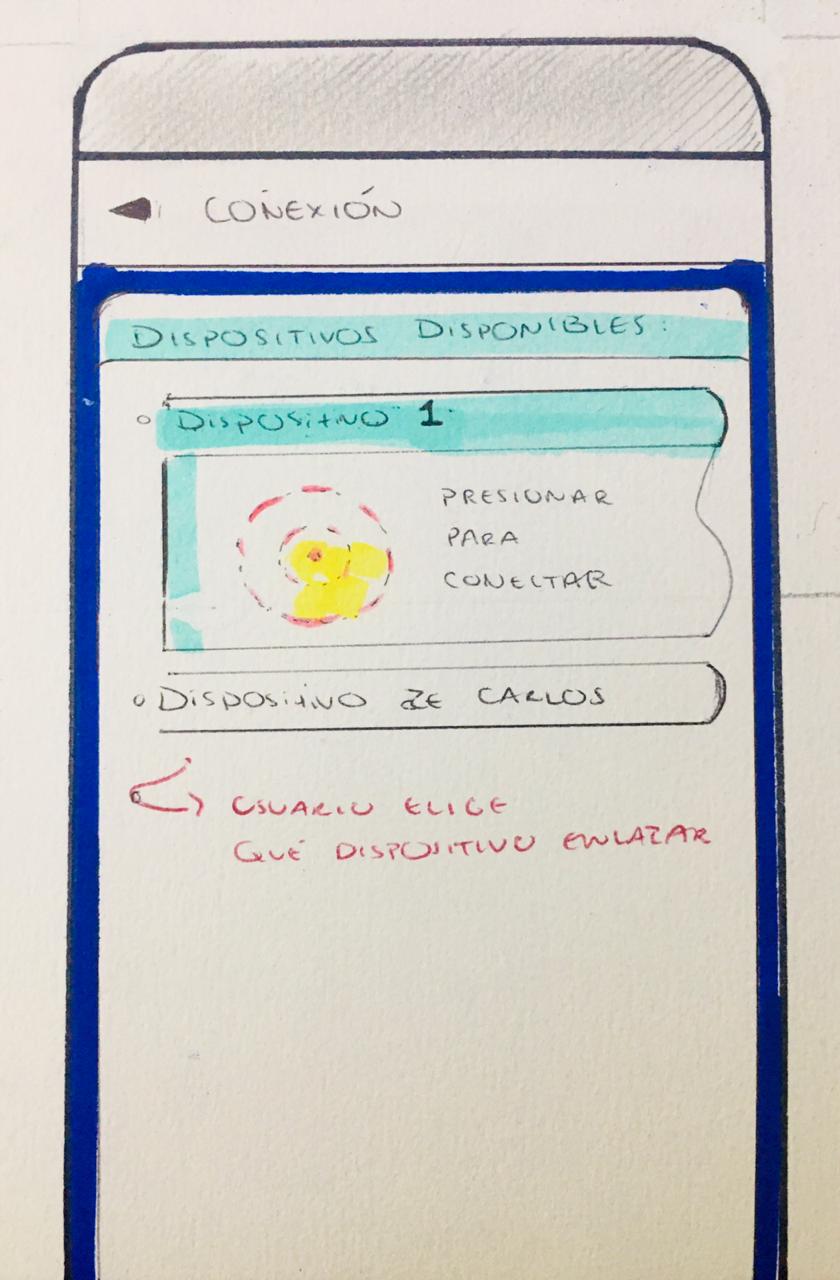 CONEXIÓN
DISPOSITIVOS DISPONIBLES:
DISPOSITIVO 1
PRESIONAR
PARA
CONECTAR
DISPOSITIVO DE CARLOS
USUARIO ELIGE
QUÉ DISPOSITIVO ENLAZAR